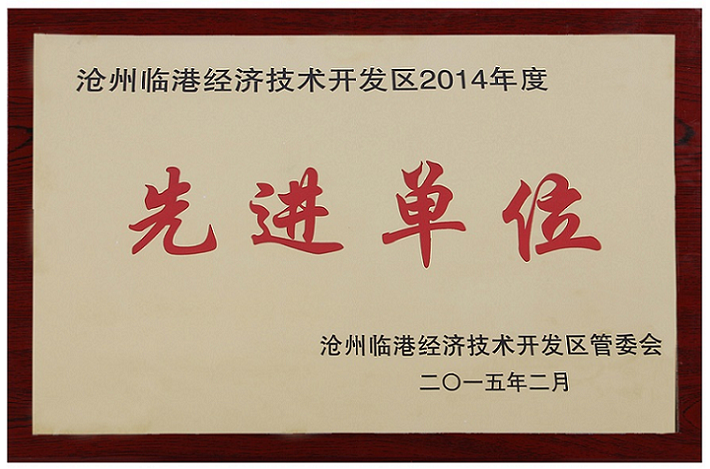 沧州临港经济技术开发区2014年度
先进单位
沧州临港经济技术开发区管委会
二〇一五年二月